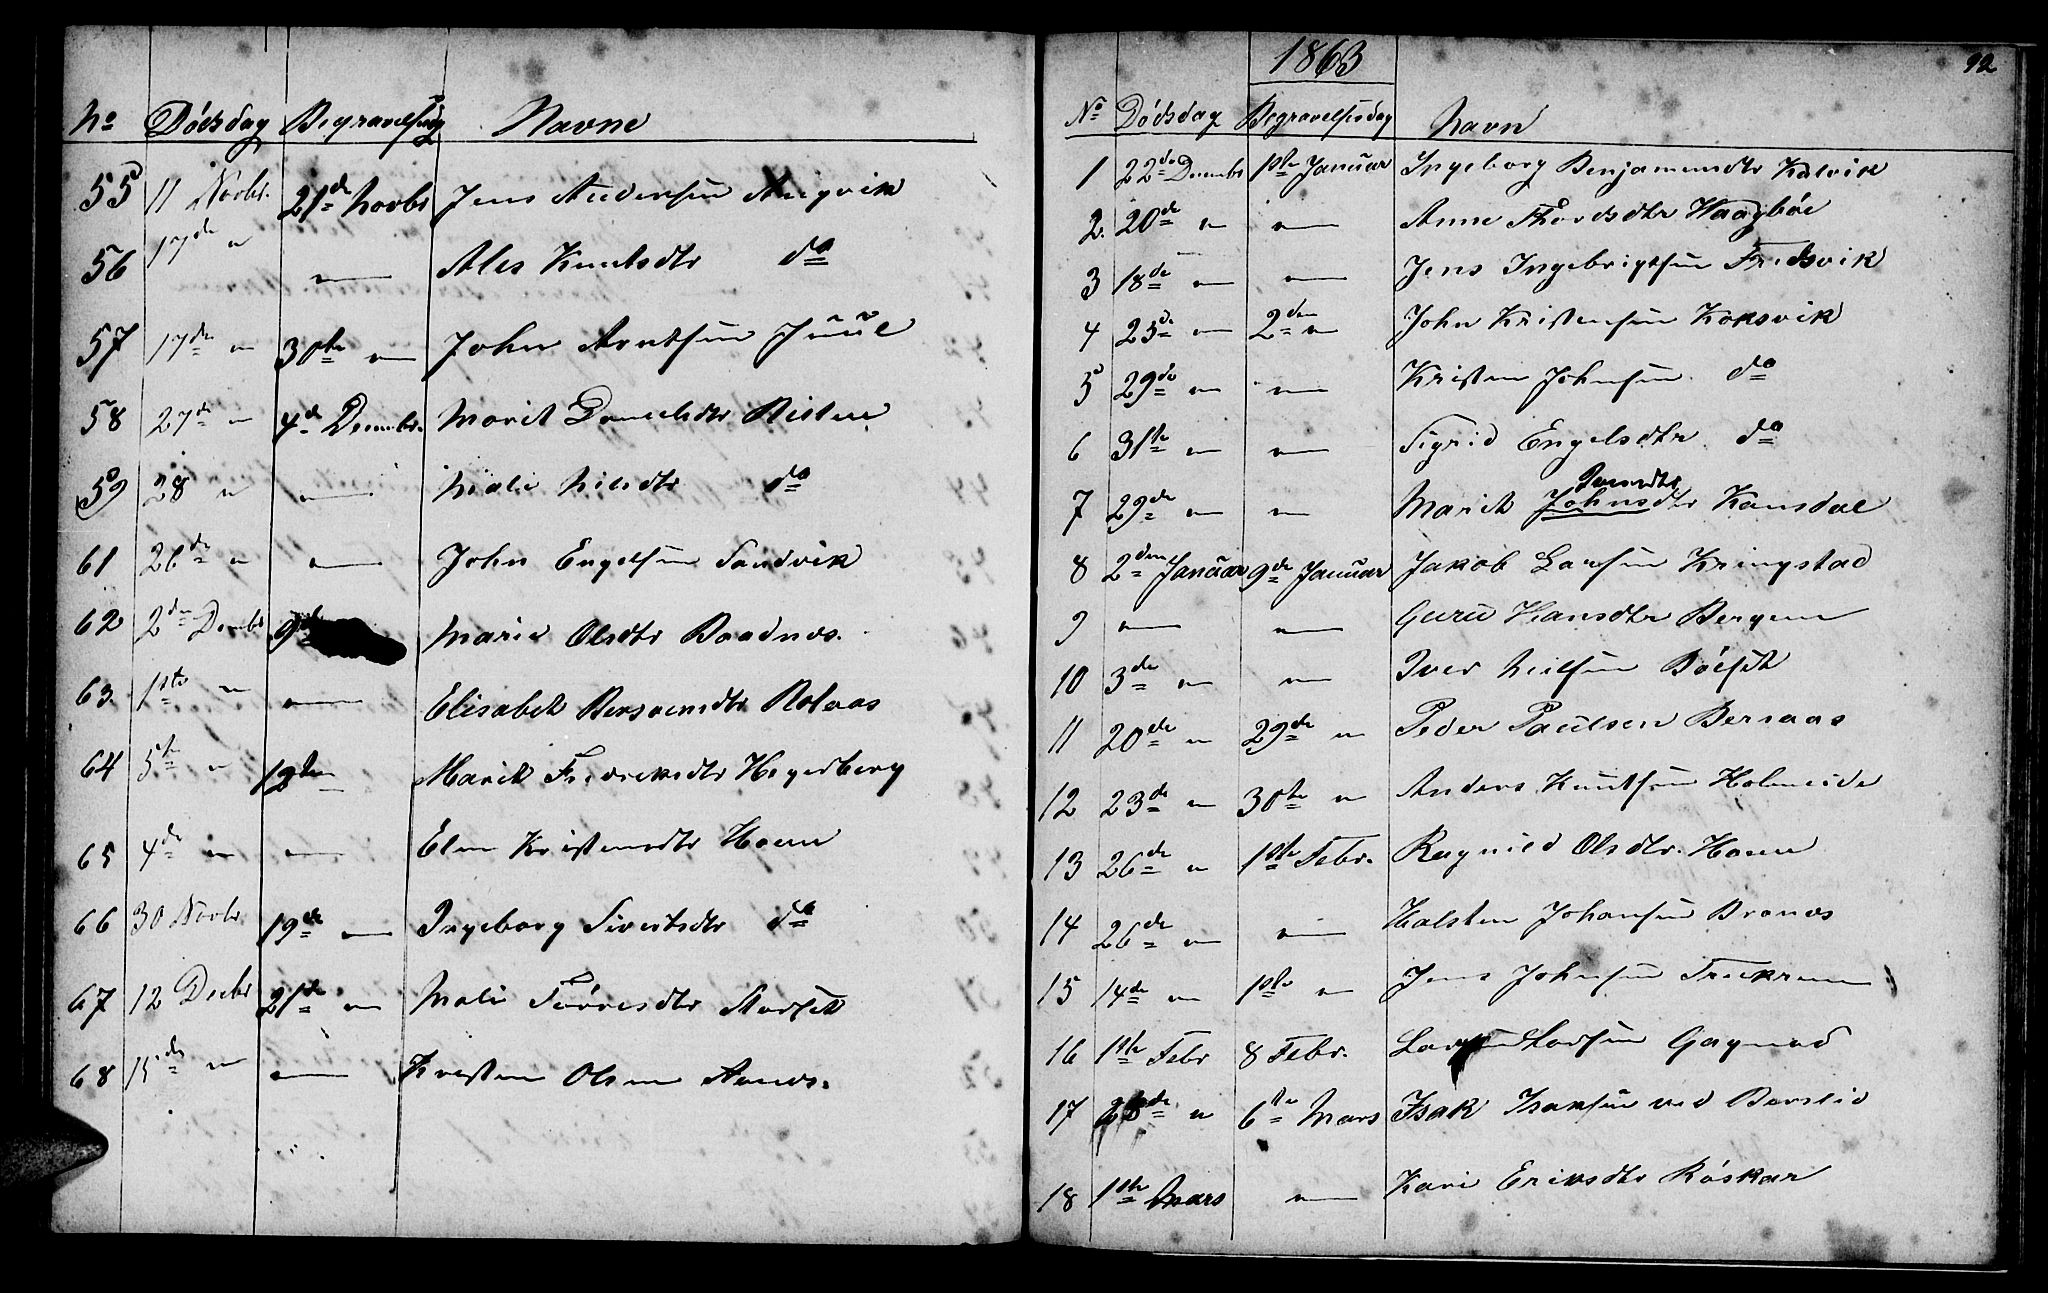 No Dödsdag Begravelsesdag Navne
55 11 Novbr. 21de Novbr Jens Andersen Angvik
56 17de " — Ales Knutsdtr do
57 17de " 30te " John Arntsen Juul
58 27de " 4de Decembr. Marit Danielsdtr Risten
59 28 " — Mali Nilsdtr do
61 26de " — John Engelsen Sandvik
62 2den Decmbr 9de Marie Olsdtr Baadnæs.
63 1ste " — Elisabet Bersvensdtr Rolaas
64 5te " 12te Marit Fredriksdtr Hegerberg
65 4de " — Elen Kristensdtr Hoem
66 30 Novbr 19de — Ingeborg Sivertsdtr do
67 12 Decbr 21de " Mali Torresdtr Aarset
68 15de " — Kristen Olsen Aanes.
1863
92
No Dödsdag Begravelsesdag Navn
1 22de Decembr 1ste Januar Ingeborg Benjamensdtr Kalvik
2. 20de " — Anne Thordsdtr Haagböe
3 18de " — Jens Ingebrigtsen Fredsvik
4 25de " 2den " John Kristensen Koksvik
5 29de " — Kristen Johnsen do
6 31te " — Sigrid Engelsdtr do
Iversdtr
7 29de " — Marit Johnsdtr Kansdal
8 2den Januar 9de Januar Jakob Larsen Kringstad
9 — — Guru Hansdtr Bergem
10 3de " — Iver Nilsen Bölset
11 20de " 29de " Peder Paulsen Bersaas
12 23de " 30te " Anders Knutsen Holmeide
13 26de " 1ste Febr. Ragnild Olsdtr. Hoem
14 26de " — Halsten Johansen Bronæs
15 14de " 1ste " Jens Johnsen Trekrem
16 1ste Febr 8 Febr. Larsen Gagnad
17 28de " 6te Mars Isak Isaksen ved Berslid
18 1ste Mars — Kari Eriksdtr Röskar